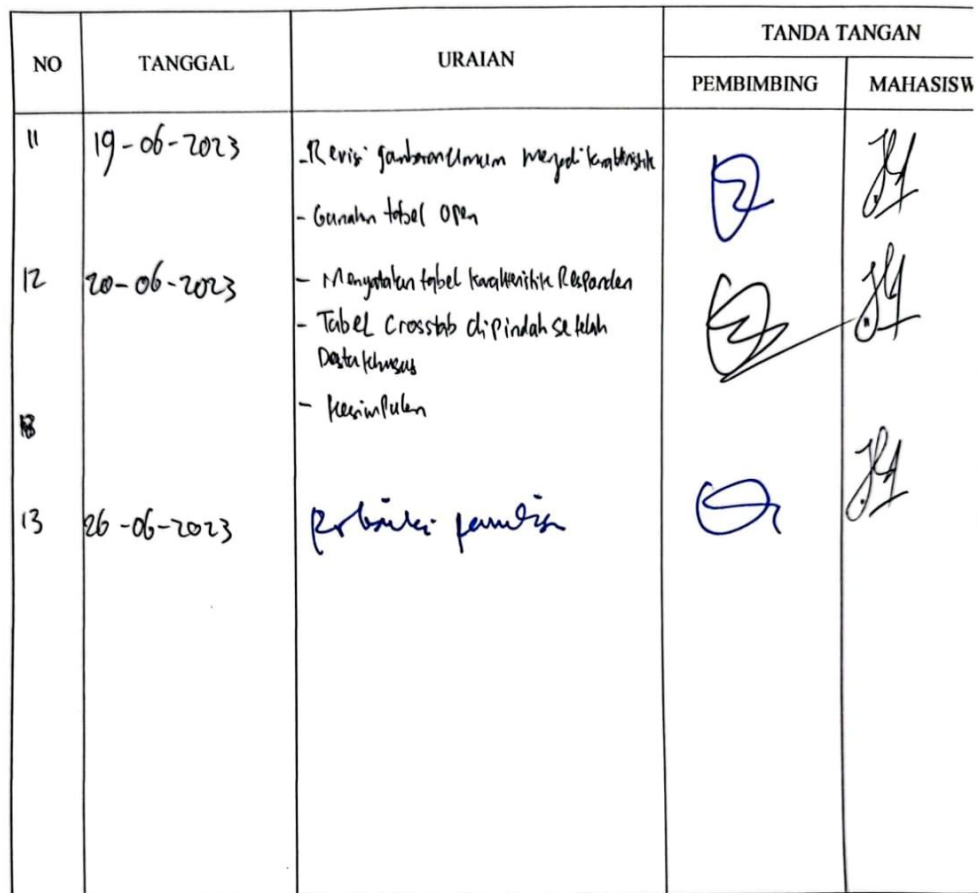 NO
TANGGAL
URAIAN
TANDA TANGAN
PEMBIMBING
MAHASISW
11
19-06-2023
- Revisi gambaran Umum menjadi karakteristik
- Gunakan tabel Open
12
20-06-2023
- Menyatakan tabel karakteristik Responden
- Tabel Crosstab dipindah setelah
Data khusus
- Kesimpulan
13
26-06-2023
Perbaiki penulisan